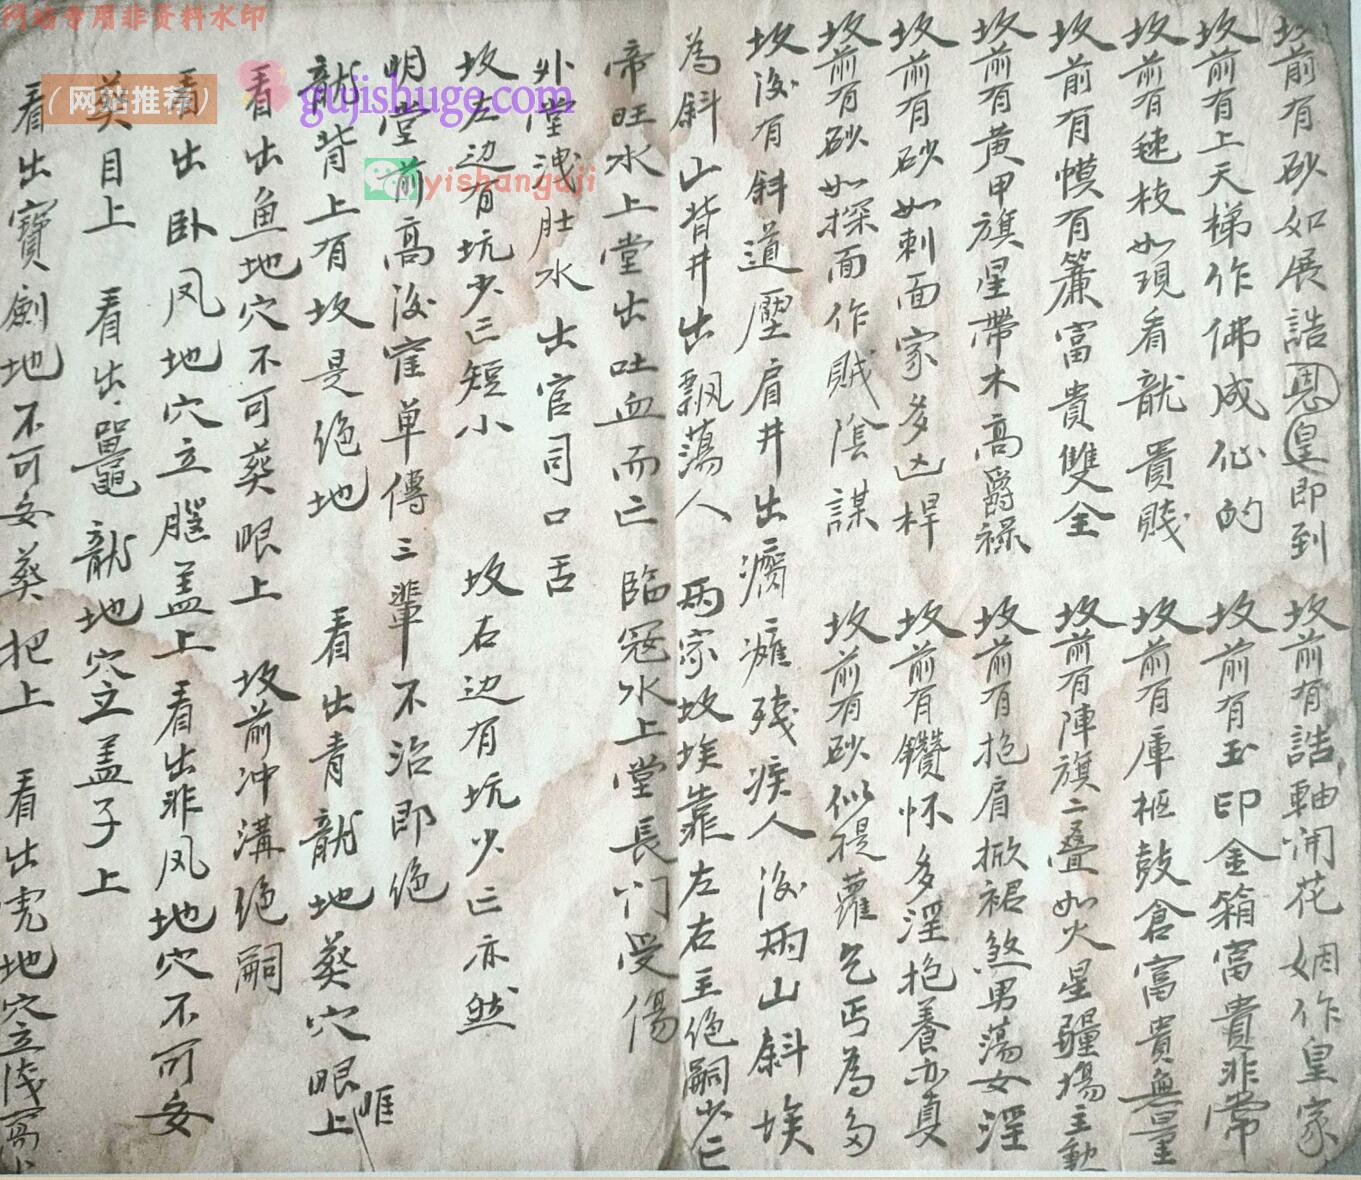 网站专用非资料水印
（网站推荐）
gujishuge.com
yishanguji
坟前有砂如展誥恩皇即到 坟前有誥軸開花姻作皇家
坟前有上天梯作佛成仙的 坟前有玉印金箱富貴非常
坟前有秧枝如現看龍貴賤 坟前有庫柜鼓倉富貴無量
坟前有幙有簾富貴雙全 坟前有陣旗二叠如火星疆場主動
坟前有黄甲旗星帶木高爵禄 坟前有抱肩掀裙煞男蕩女淫
坟前有砂如刺面家多凶桿 坟前有鑽怀多淫抱養亦真
坟前有砂如探面作贼陰謀 坟前有砂似提蘿乞丐為多
坟後有斜道壓肩井出癘癱残疾人 後両山斜埃
為斜山背井出飘蕩人 两家坟埃靠左右主绝嗣少亡
帝旺水上堂出吐血而亡 臨冠水上堂長门受傷
外堂洩肚水出官司口舌
坟左边有坑少亡短小 坟右边有坑少亡亦然
明堂前高後窪单傳三輩不治即绝
龍背上有坟是绝地 看出青龍地葬穴眼上
眶
看出鱼地穴不可葬眼上 坟前冲溝绝嗣
看出卧凤地穴立腿盖上 看出非凤地穴不可妄
葵目上 看出鼉龍地穴立盖子上
看出寶劍地不可妄葵把上 看出虎地穴立